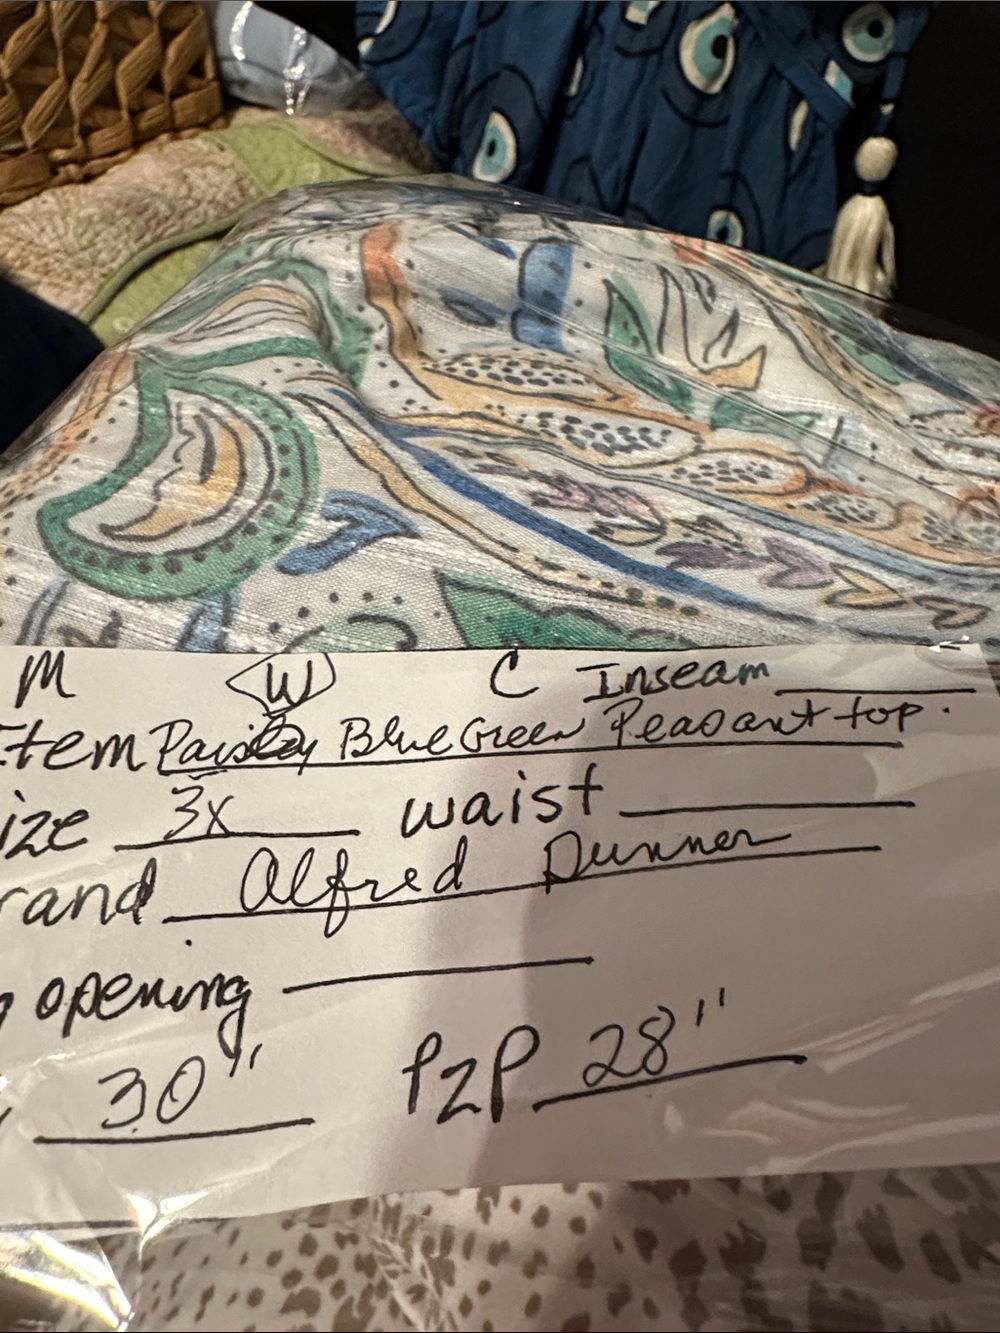 M W C Inseam
Item Paisley Blue Green Peasant top.
ize 3x waist
rand Alfred Dunner
opening
30" P2P 28"